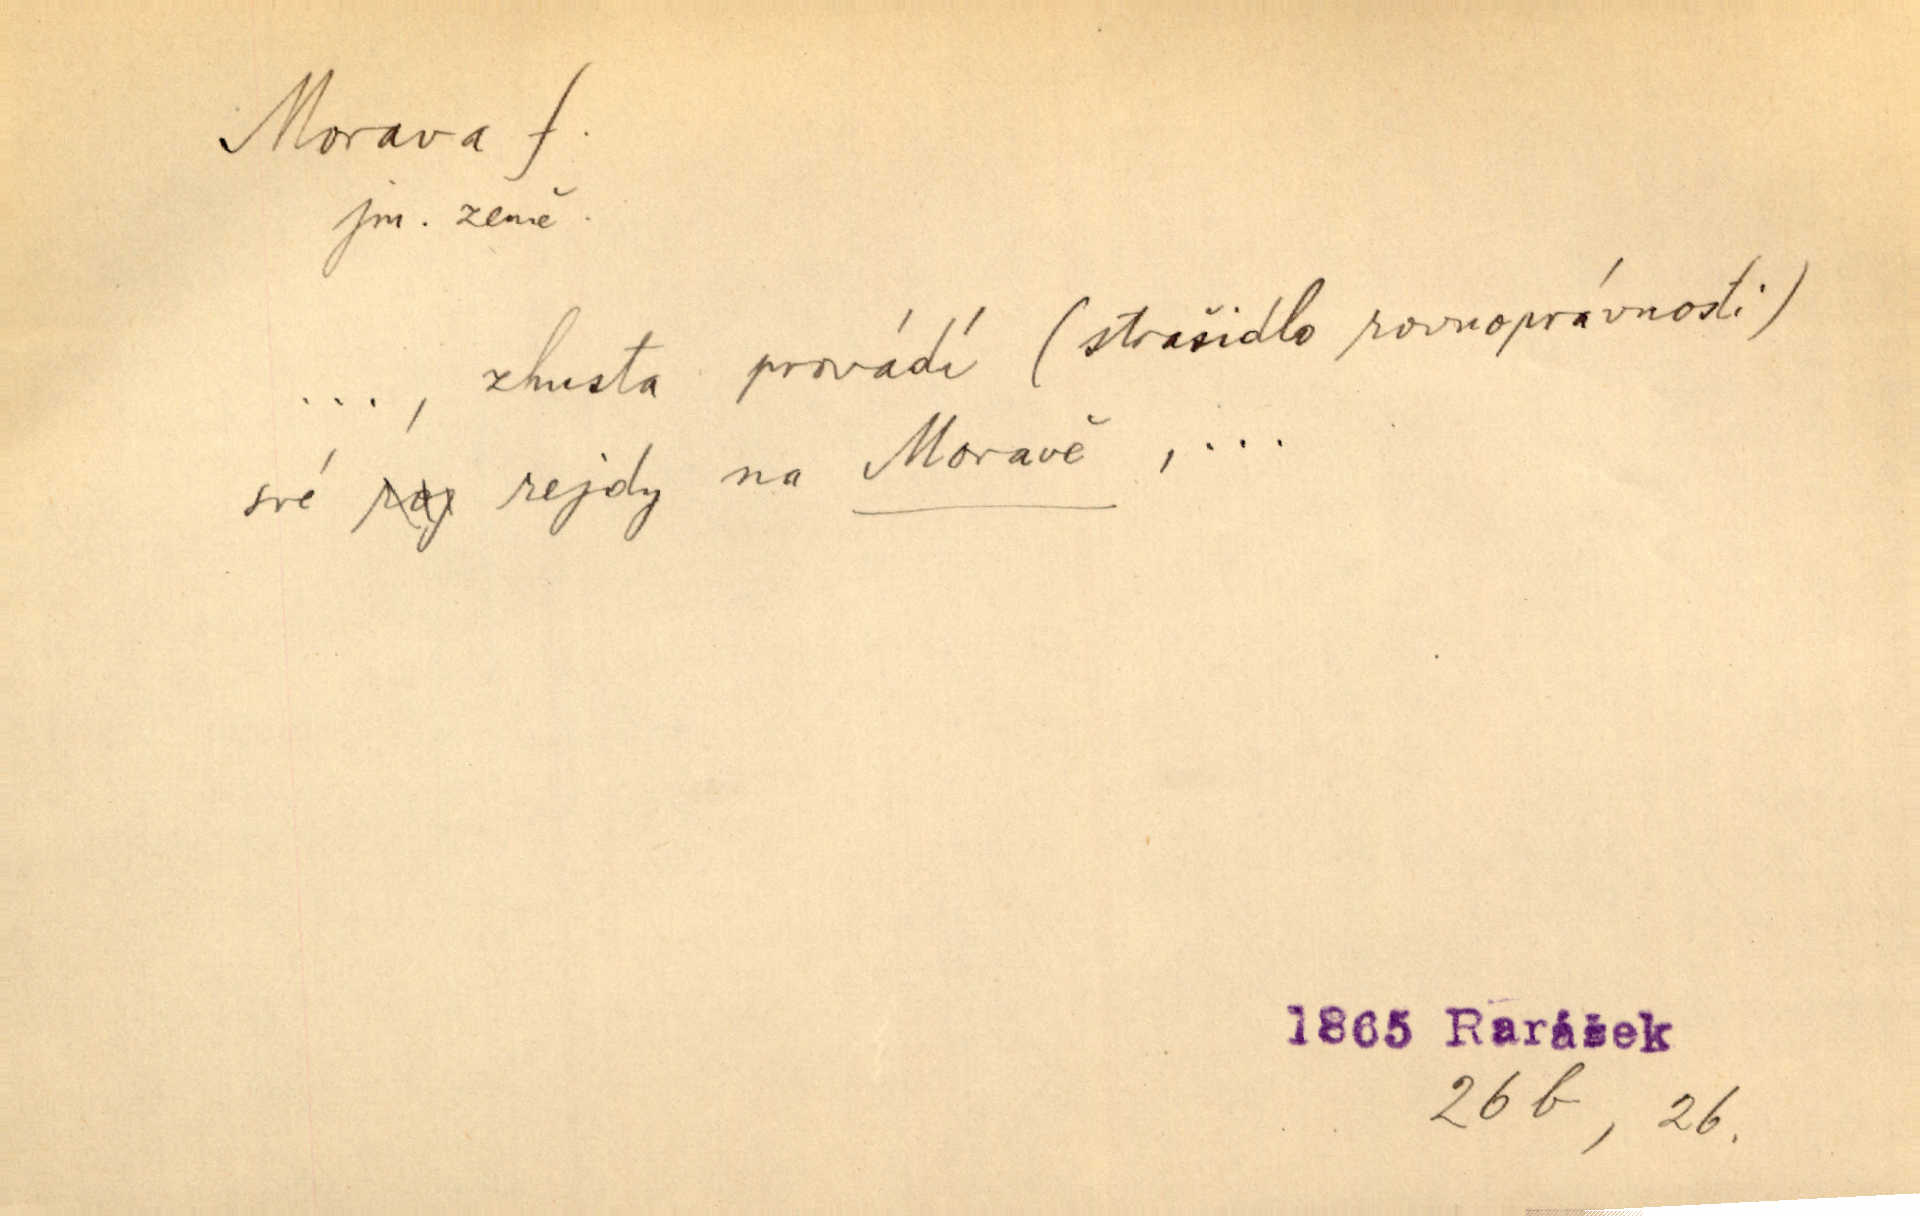 Morava f.
jm. země.
..., zhusta provádí (strašidlo rovnoprávnosti)
své rejdy na Moravě, ...
1865 Rarášek
26 b, 26.